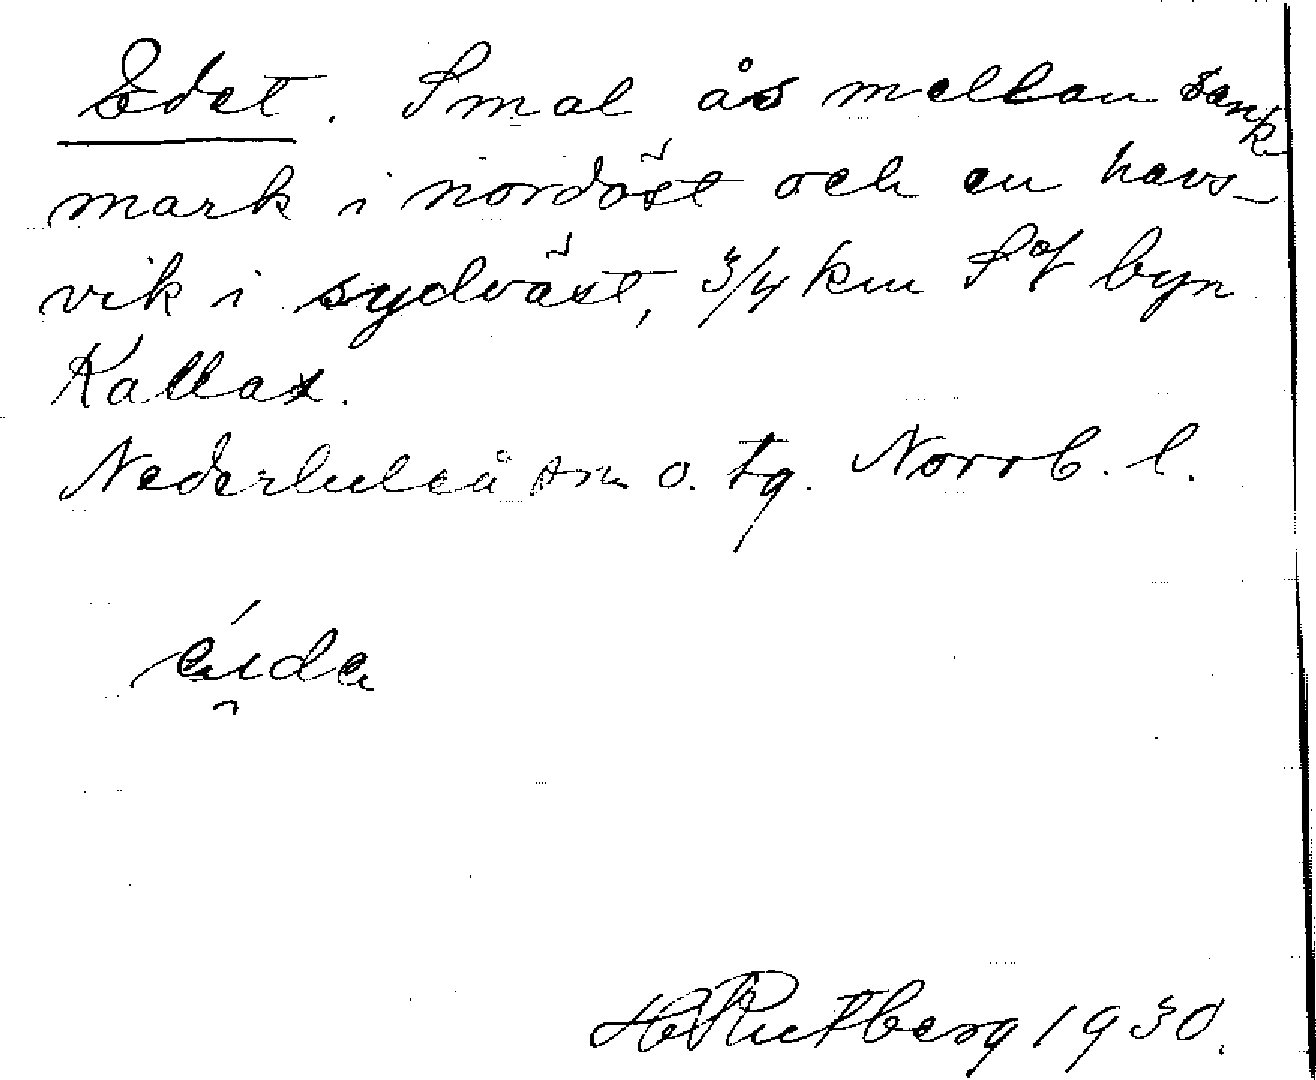 Edet. Smal ås mellan sank
mark i nordöst och en havs-
vik i sydväst, 3/4 km S of byn
Kallax.
Nederluleå sn o. tg. Norrb. l.
H Rutberg 1930.